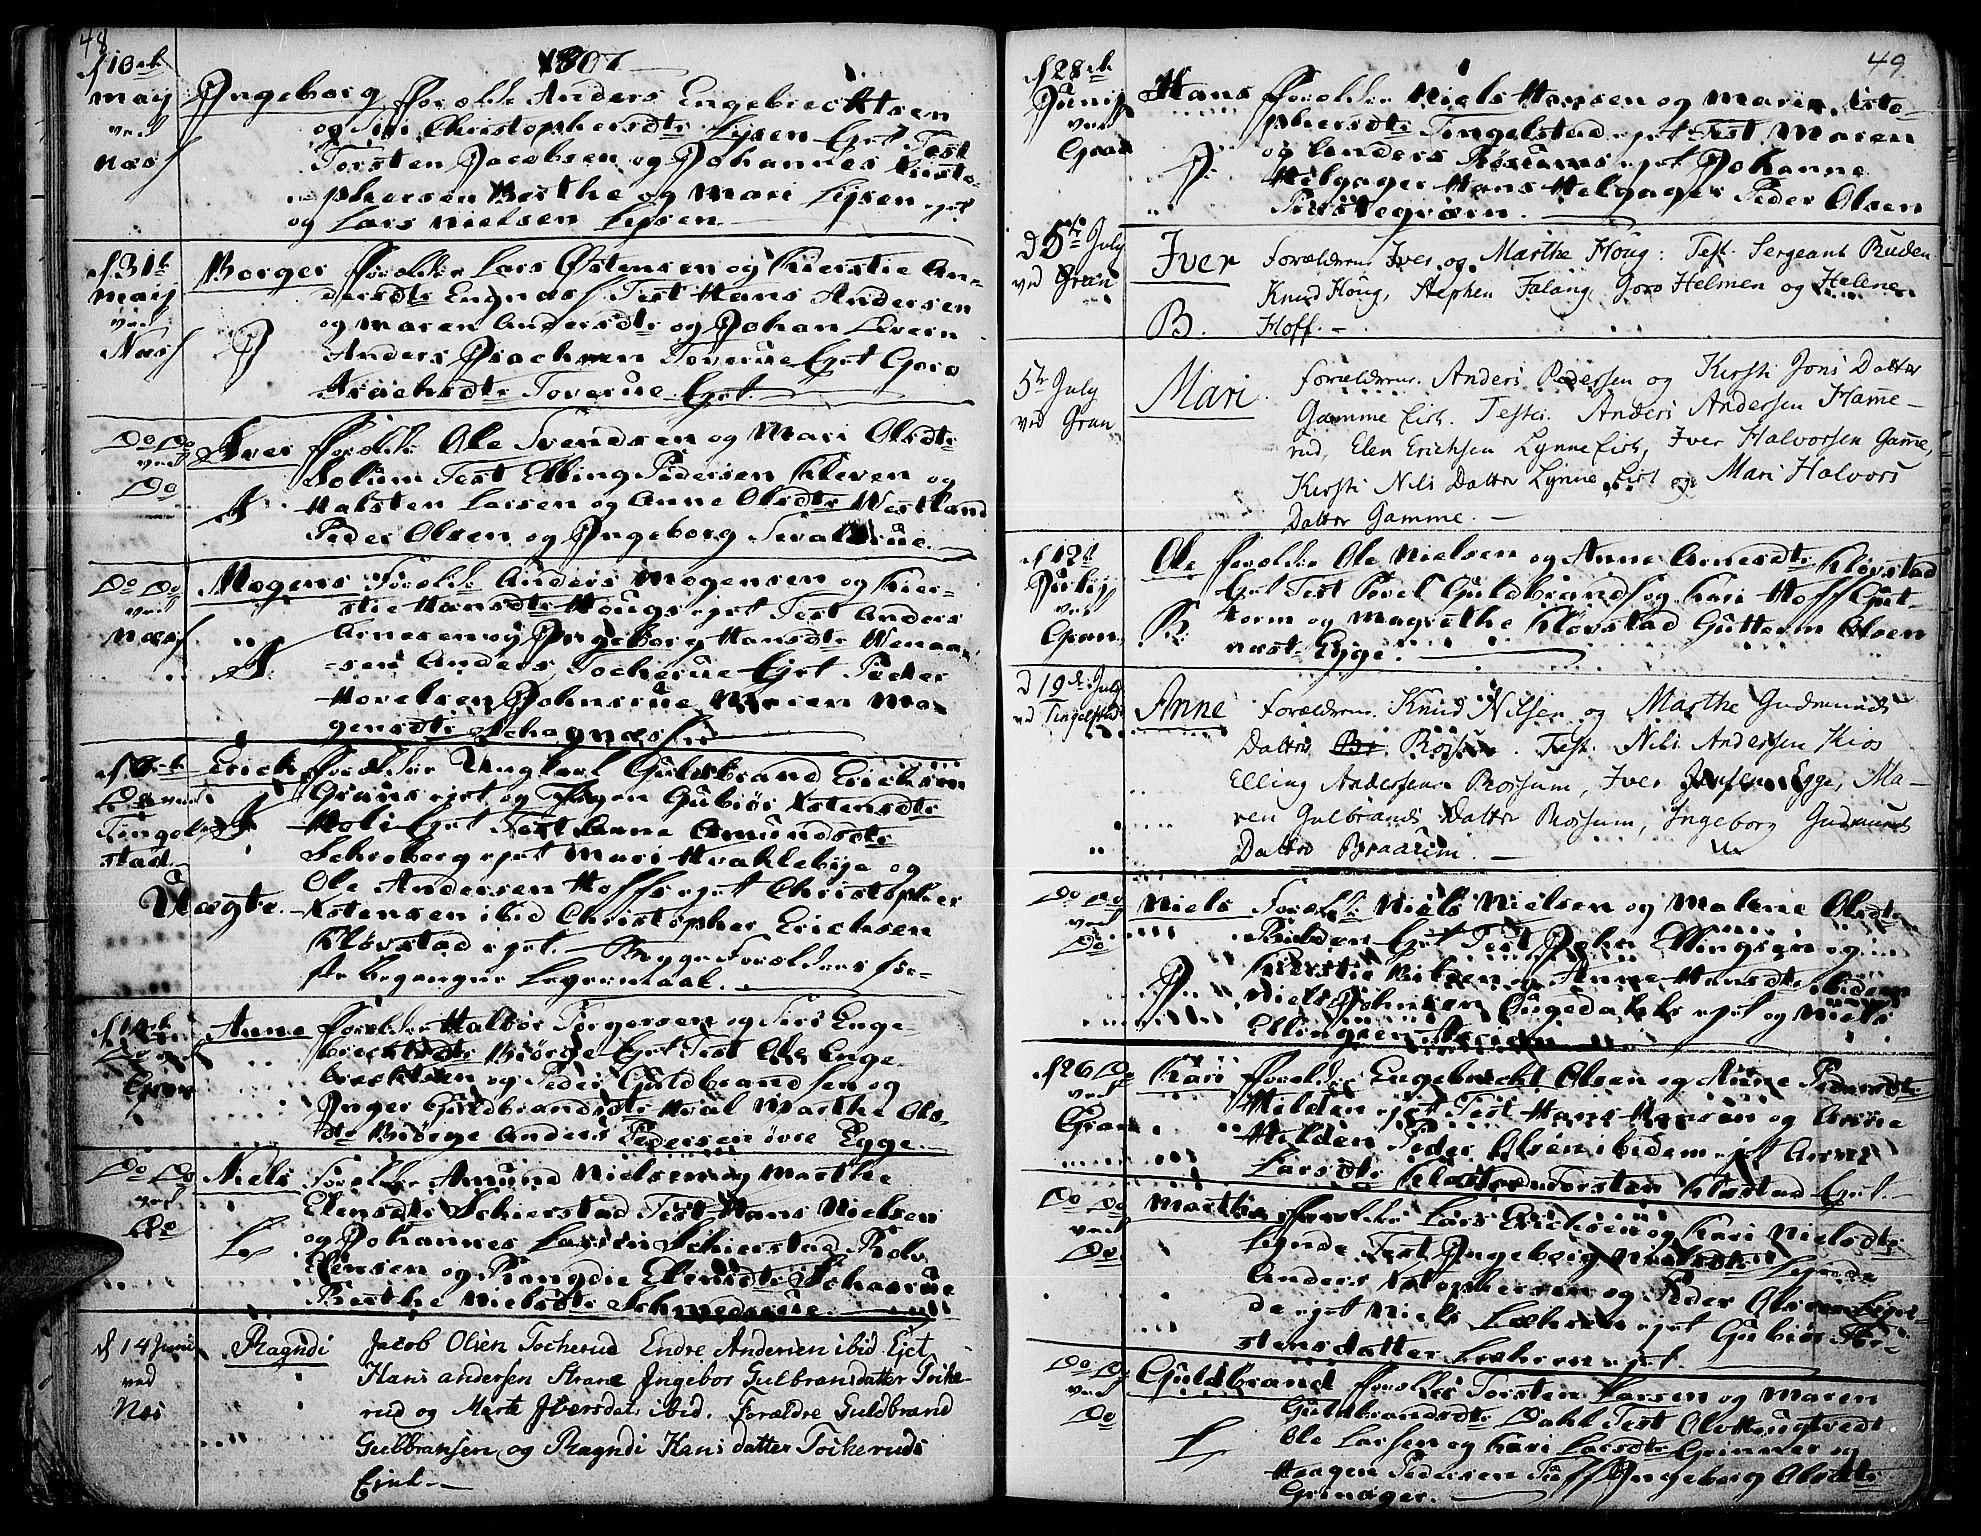 48
1807
d 10de
May
ved
Næss
Ingeborg forældre Anders Engebrechtsen
og Siri Christophersdtr Lysen Ejet Test
Torsten Jacobsen og Johannes Christo-
phersen Berthe og Mari Lysen ejet
og Lars Nielsen Lysen
d 31te
Maij
ved
Næss
Borger forældre Lars Østensen og Kierstie An-
dersdtr Engnæss Test Hans Andersen
og Maren Andersdtr og Johan
Anders Toverue Ejet Goro
Toverue Ejet
Do Do
ved
Do
Iver forældre Ole Svendsen og Mari Olsdtr
Solum Test Elling Pedersen Kleven og
Halsten Larsen og Anne Olsdtr Westland
Peder Olsen og Ingeborg
Do Do
ved
Næss
Mogens Forældre Anders Mogensen og Kier-
stie Hansdtr Hougs ejet Test Anders
Arnesen og Ingeborg Hansdtr
Anders Tocherue Ejet Peder
Johnsrue Maren Mo-
gensdtr
Do ved
Tingel-
stad
Uægte
Erich forældre Ungkarl Guldbrand Erichsen
Grans ejet og Pigen Gubiør Østensdtr
Holi Ejet Test Anne Amundsdtr
Schreberg ejet Mari og
Ole Andersen Hoffs ejet Christopher
Østensen ibid Christopher Erichsen
Kløvstad ejet. Begge Forældres før-
ste begangne Leyermaal.
d 14de
Do ved
Gran
Anne forældre Halvor Torgersen og Siri Enge-
brechtsdtr Biørge Ejet Test Ole Enge-
brechtsen og Peder Guldbrandsen og
Inger Guldbrandsdtr Hval Marthe Ols-
dtr Biørge Anders Pedersen øvre Egge
Do Do
ved
Do
Niels Forældre Amund Nielsen og Marthe
Elensdtr Schierstad Test Hans Nielsen
og Johannes Larsen Schierstad Rolv
Elensen og Rangdie Elensdtr
Berthe Nielsdtr
d 14 Juni
ved
Næs
Ragndi Jacob Olsen Tocherud Endre Andersen ibid Ejet
Hans andersen Strane Ingebor Gulbransdatter Toike-
rud og Marte Iversdatr ibid. Forældre Guldbrand
Gulbransen og Ragndi Hans datter Toikeruds
Ejet.
49
d 28de
Junij
ved
Gran
Hans forældre Niels Hansen og Maria Christo-
phersdtr Tingelstad ejet Test Maren
og Anders Røsums ejet Johanne
Helgager Hans Helgager Peder Olsen
d 5te July
ved Gran
Iver Forældrene Iver og Marthe Houg: Test. Sergeant Ruden
Knud Houg, Stephen Falang, Goro Helmen og Helene
B. Hoff.
5te July
ved Gran
Mari. Forældrene. Anders Pedersen og Kirsti Jons Datter
Gamme Eiet. Testes. Anders Andersen Hamme-
rud, Elen Erichsen Lynne Eiet, Iver Halvorsen Gamme,
Kirsti Nils Datter Lynne Eiet og Mari Halvors
Datter Gamme.
d 12te
Julij
ved
Gran
Ole forældre Ole Nielsen og Anne Arnesdtr Kløvstad
Ejet Test Povel Guldbrands og Kari Hoff Gut-
torm og Magrethe Kløvstad Guttorm Olsen
næst Egge.
d 19de July
ved Tingelstad
Anne Forældrene. Knud Nilsen og Marthe Gudmunds
Datter Rossum. Test. Nils Andersen
Elling Andersen Rossum, Iver Egge, Ma-
ren Gulbrands Datter Rossum, Ingeborg Gudmunds
Datter
Do Do
ved
Do
Niels Forældre Niels Nielsen og Malene Olsdtr
Ejet Test John Ellingsen og
Kierstie og Anne Hansdtr ibidem
Niels Johnsen ejet og Niels
Ellingsen
d 26 Do
ved
Gran
Kari forældre Engebrecht Olsen og Anne Pedersdtr
Hilden ejet Test Hans Hansen og Anne
Hilden Peder Olsen ibidem ejet Anne
Larsdtr Klæstad Torsten Klæstad Ejet.
Do Do
ved
Do
Marthe forældre Lars Erichsen og Kari Nielsdtr
Lynde Test Ingeborg Nielsdtr Lynde
Anders og Peder Olsen
ejet Niels Læhren ejet Gubiør
stensdatter Læhren ejet
Do Do
ved
Do
Guldbrand forældre Torsten Larsen og Maren
Guldbrandsdtr Dahl Test
Ole Larsen og Kari Larsdtr Grinager og
Haagen Pedersen Tuff Ingeborg Olsdtr
Grinager.